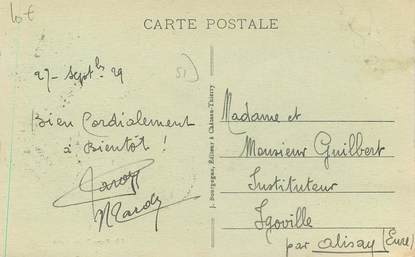 lot
CARTE POSTALE
27 - Sept bre 29
51
Bien Cordialement
à Bientôt !
J. Bourgogne, Éditeur à Château-Thierry
Madame et
Monsieur Guilbert
Instituteur
Igoville
par Alizay (Eure)